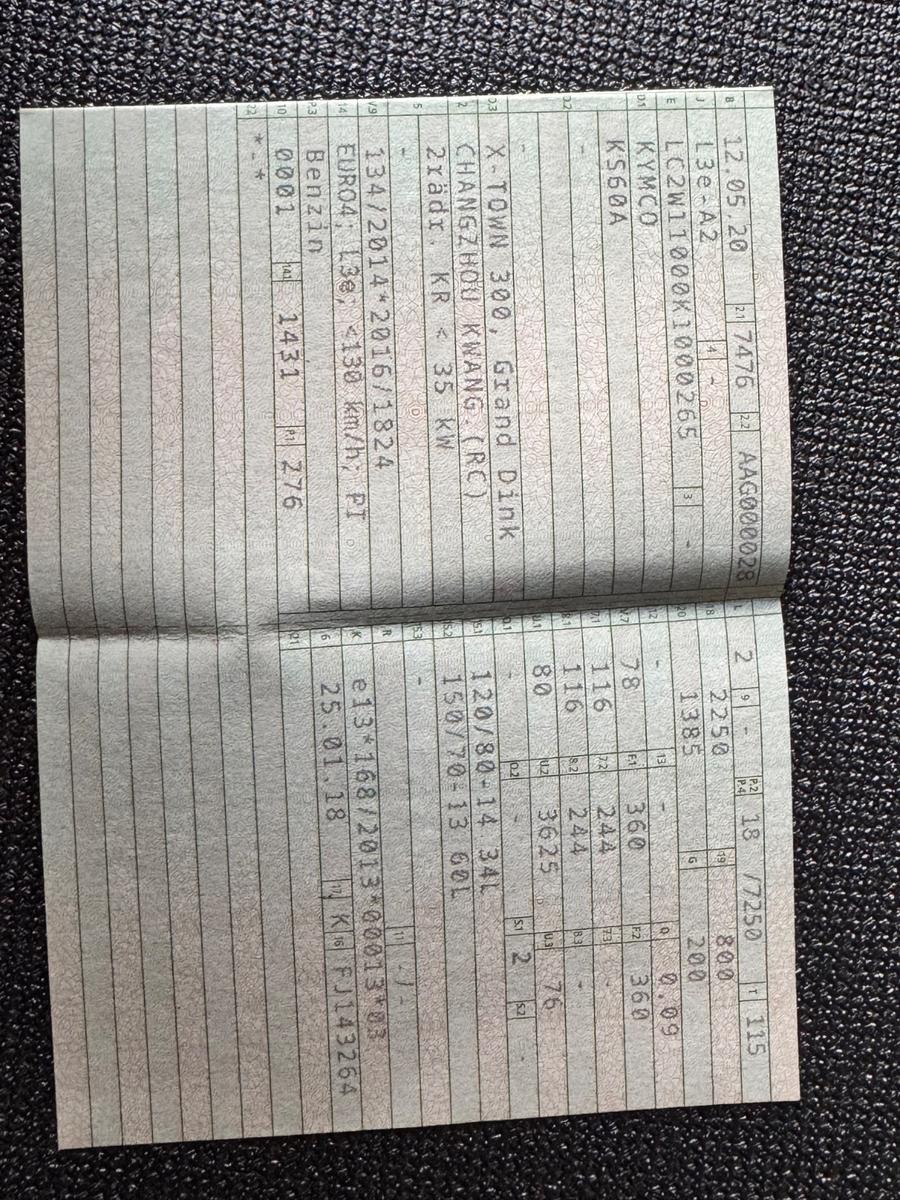 B 12.05.20 2.1 7476 2.2 AAG000028
J L3e-A2 4 -
E LC2W11000K1000265 3 -
D.1 KYMCO
KS60A
D.2 -
-
D.3 X-TOWN 300, Grand Dink
2 CHANGZHOU KWANG.(RC)
2rädr. KR < 35 KW
5 -
V.9 134/2014*2016/1824
14 EURO4; L3e; <130 km/h; PI
P.3 Benzin
10 0001 14.1 1431 P.1 276
22 *-*
L 2 9 - P.2 P.4 18 /7250 T 115
18 2250 19 800
20 1385 G 200
12 - 13 - Q 0.09
V.7 78 F.1 360 F.2 360
7.1 116 7.2 244 7.3 -
8.1 116 8.2 244 8.3 -
U.1 80 U.2 3625 U.3 76
O.1 - O.2 - S.1 2 S.2 -
15.1 120/80-14 34L
15.2 150/70-13 60L
15.3 -
R 11 -/-
K e13*168/2013*00013*03
6 25.01.18 17 K 16 FJ143264
21